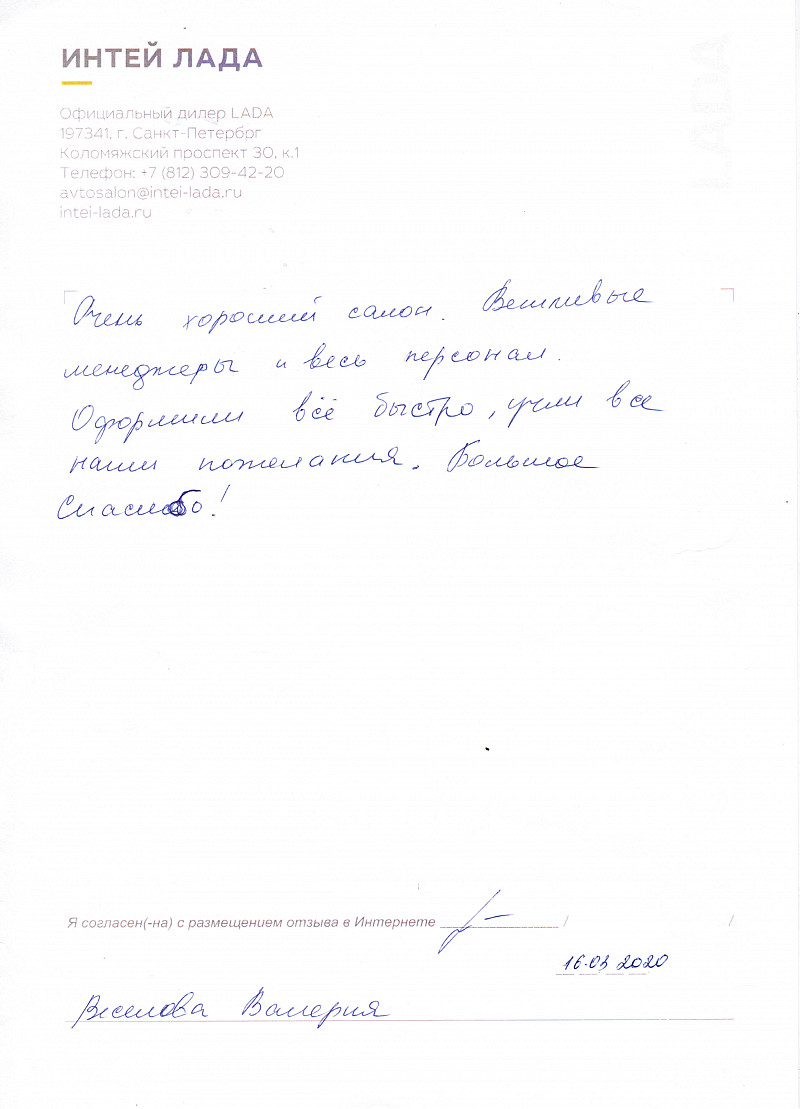 ИНТЕЙ ЛАДА
Официальный дилер LADA
197341, г. Санкт-Петербрг
Коломяжский проспект 30, к.1
Телефон: +7 (812) 309-42-20
avtosalon@intei-lada.ru
intei-lada.ru
LADA
Очень хороший салон. Вежливые
менеджеры и весь персонал.
Оформили всё быстро, учли все
наши пожелания. Большое
Спасибо!
Я согласен(-на) с размещением отзыва в Интернете ____________ / /
16.03 2020
Веселова Валерия